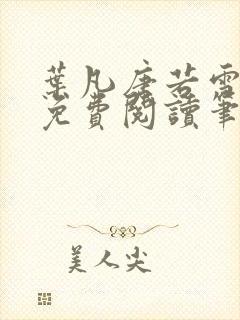 葉凡唐若雪
免費閱讀筆
美人尖